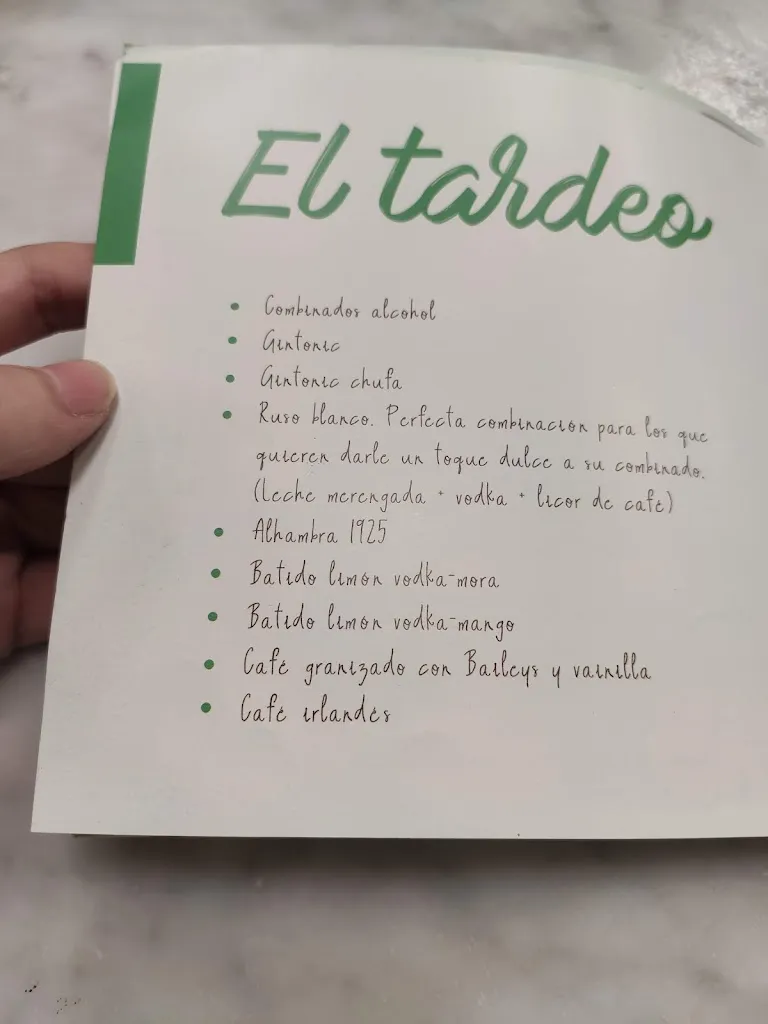 El tardeo
• Combinados alcohol
• Gintonic
• Gintonic chufa
• Ruso blanco. Perfecta combinación para los que
quieren darle un toque dulce a su combinado.
(Leche merengada + vodka + licor de café)
• Alhambra 1925
• Batido limón vodka-mora
• Batido limón vodka-mango
• Café granizado con Baileys y vainilla
• Café irlandés